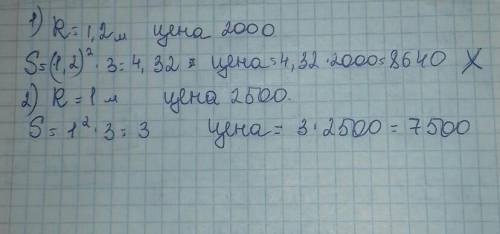 1) R = 1,2 м цена 2000
S = (1,2)² · 3 = 4,32 цена = 4,32 · 2000 = 8640 X
2) R = 1 м цена 2500.
S = 1² · 3 = 3 цена = 3 · 2500 = 7500